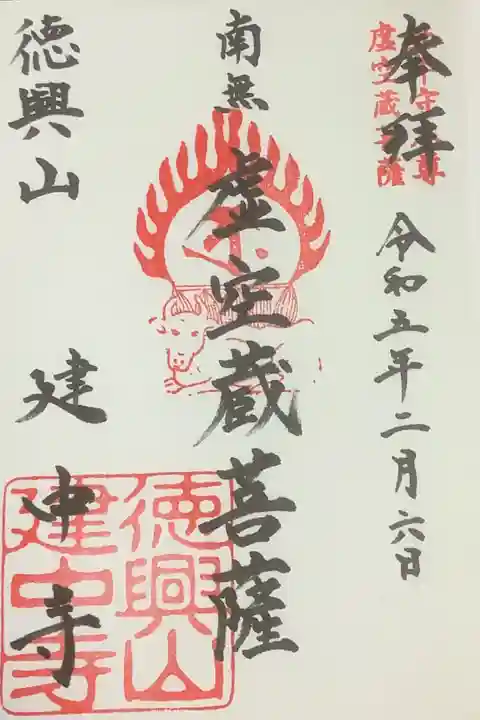 奉拝
令和五年二月六日
虚空蔵菩薩
南無
虚空蔵菩薩
徳興山
建中寺
徳興山
建中寺